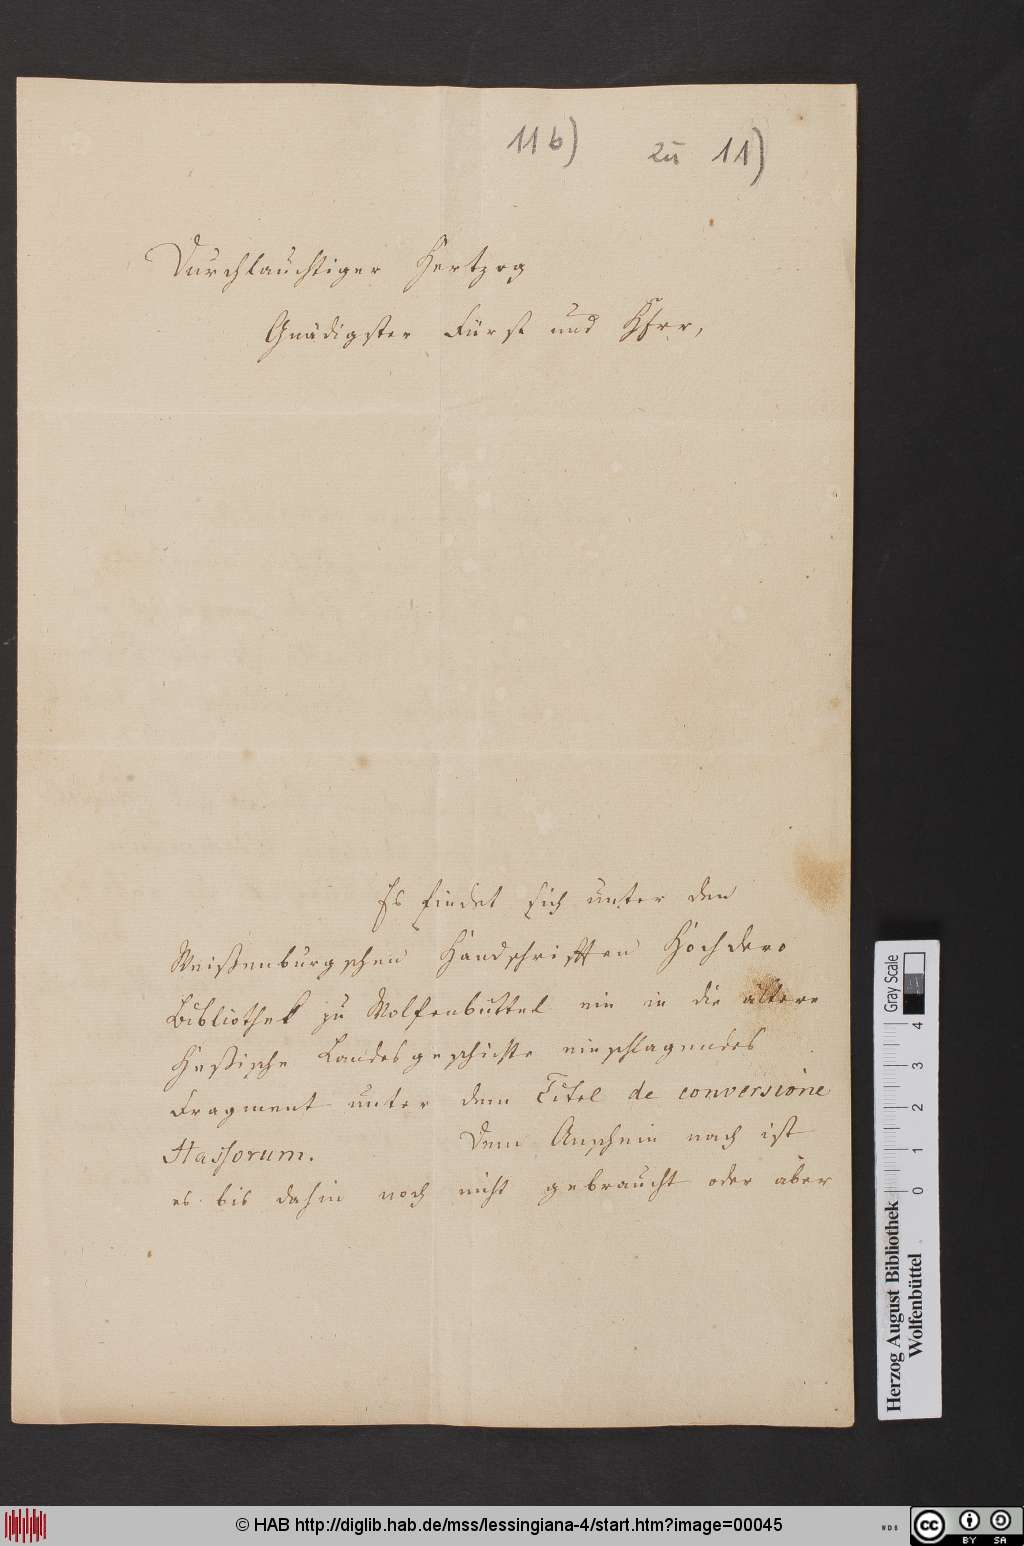 11 b) zu 11)
Durchlauchtiger Hertzog
Gnädigster Fürst und Herr,
Es findet sich unter den
Weißenburgschen Handschrifften Höchdero
Bibliothek zu Wolfenbüttel ein in die ältere
Heßische Landesgeschichte einschlagendes
Fragment unter dem Titel de conversione
Hassorum. Dem Anschein nach ist
es bis dahin noch nicht gebraucht oder aber
Herzog August Bibliothek
Wolfenbüttel
0 1 2 3 4
Gray Scale
© HAB http://diglib.hab.de/mss/lessingiana-4/start.htm?image=00045
WDB
cc BY SA